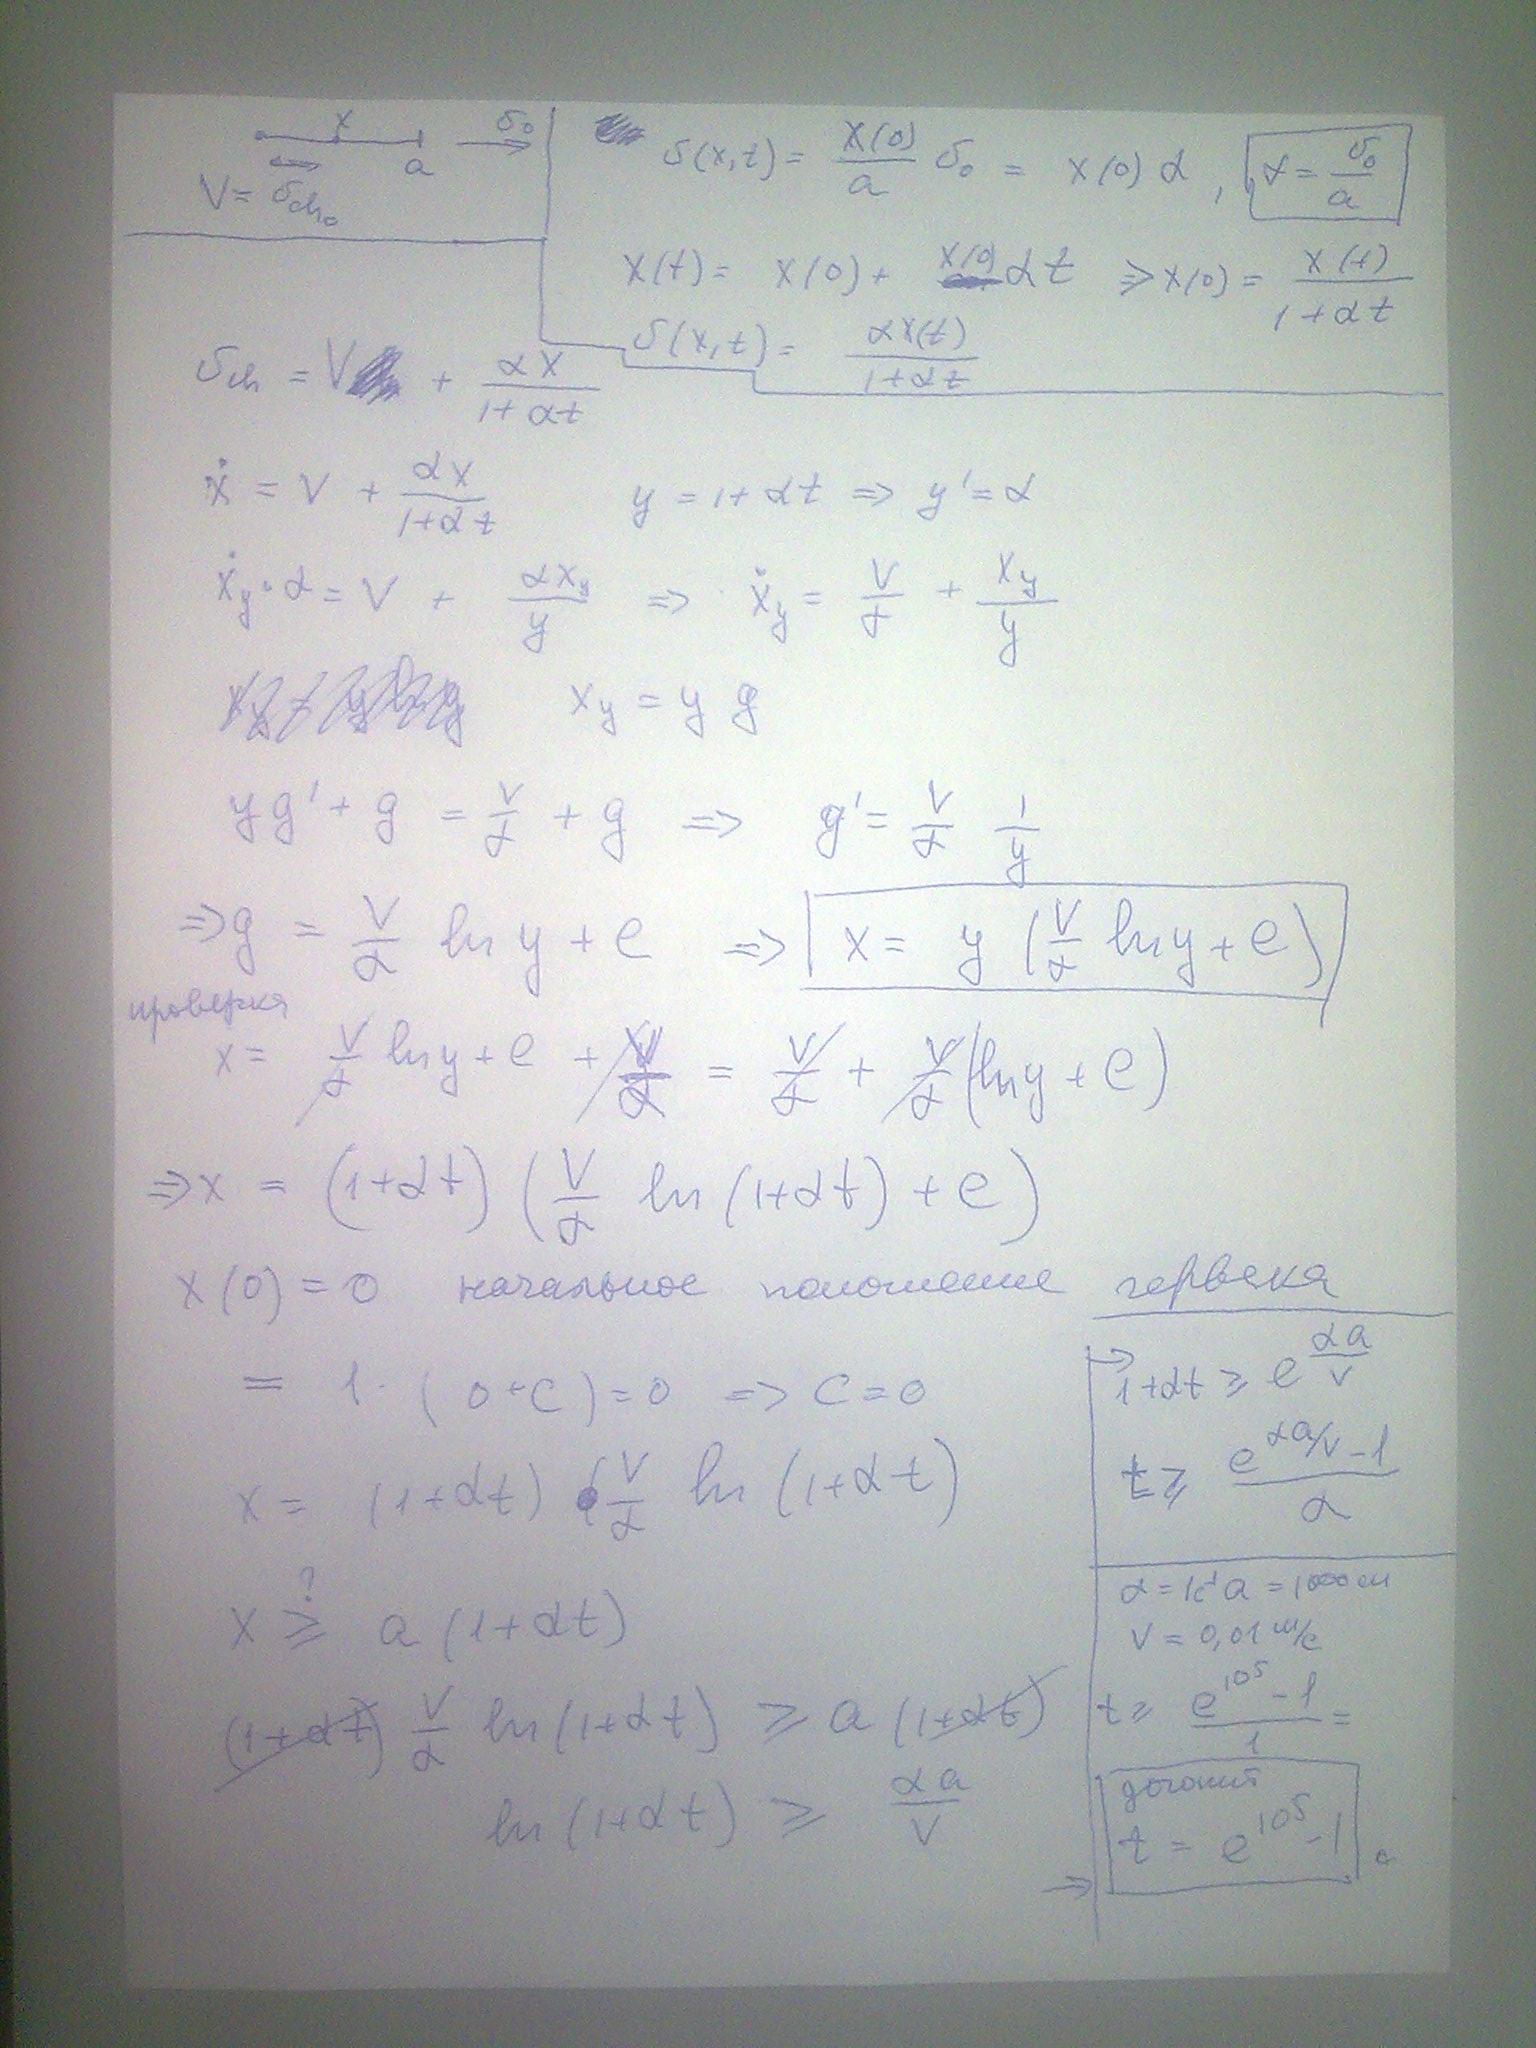 x
a
v₀
V =
v(x,t) = x(0)/a v₀ = x(0) α , α = v₀/a
x(t) = x(0) + x(0) αt ⇒ x(0) = x(t)/(1+αt)
v(x,t) = αx(t)/(1+αt)
= V + αx/(1+αt)
ẋ = V + αx/(1+αt) y = 1+αt ⇒ y' = α
ẋ_y · α = V + αx_y/y ⇒ ẋ_y = V/α + x_y/y
x_y = y g
yg' + g = V/α + g ⇒ g' = V/α 1/y
⇒ g = V/α ln y + C ⇒ x = y (V/α ln y + C)
проверка
x = V/α ln y + C + V/α = V/α + V/α (ln y + C)
⇒ x = (1+αt) (V/α ln (1+αt) + C)
x(0) = 0 начальное положение червека
= 1 · (0 + C) = 0 ⇒ C = 0
x = (1+αt) V/α ln (1+αt)
x ≥? a (1+αt)
(1+αt) V/α ln (1+αt) ≥ a (1+αt)
ln (1+αt) ≥ αa/V
→ 1+αt ≥ e^(αa/V)
t ≥ (e^(αa/V) - 1)/α
a = 1000 м
V = 0,01 м/с
t ≥ (e^(10^5) - 1)/1 =
догонит
⇒ t = e^(10^5) - 1 с